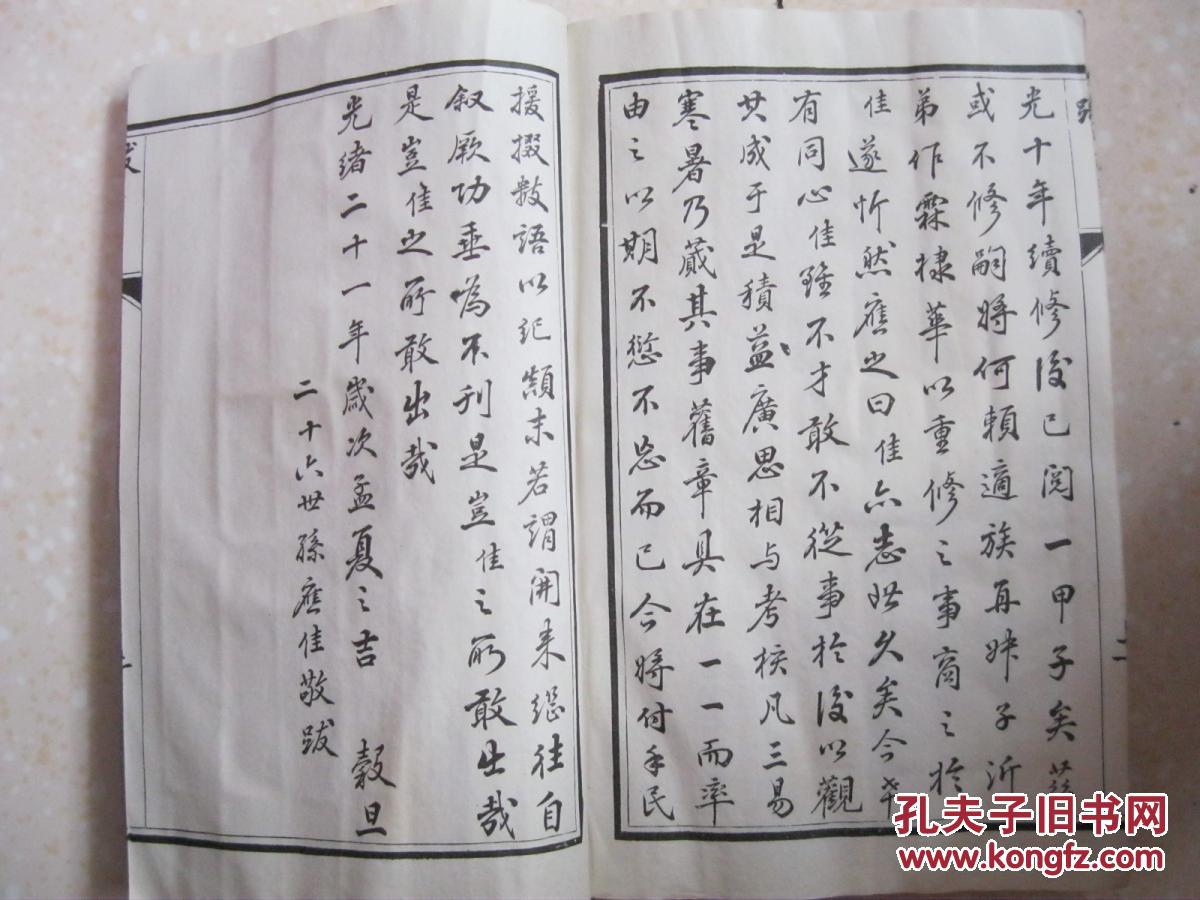 跋
光十年續修後已閱一甲子矣茲
或不修嗣將何賴適族再姪子沂
弟作霖棣華以重修之事商之於
佳遂忻然應之曰佳亦志此久矣今幸
有同心佳雖不才敢不從事於後以觀
其成于是積益廣思相与考核凡三易
寒暑乃蕆其事舊章具在一一而率
由之以期不愆不忘而已今將付手民
援掇數語以記顛末若謂開來繼往自
叙厥功垂為不刊是豈佳之所敢出哉
是豈佳之所敢出哉
光緒二十一年歲次孟夏之吉 穀旦
二十六世孫應佳敬跋
孔夫子旧书网
www.kongfz.com